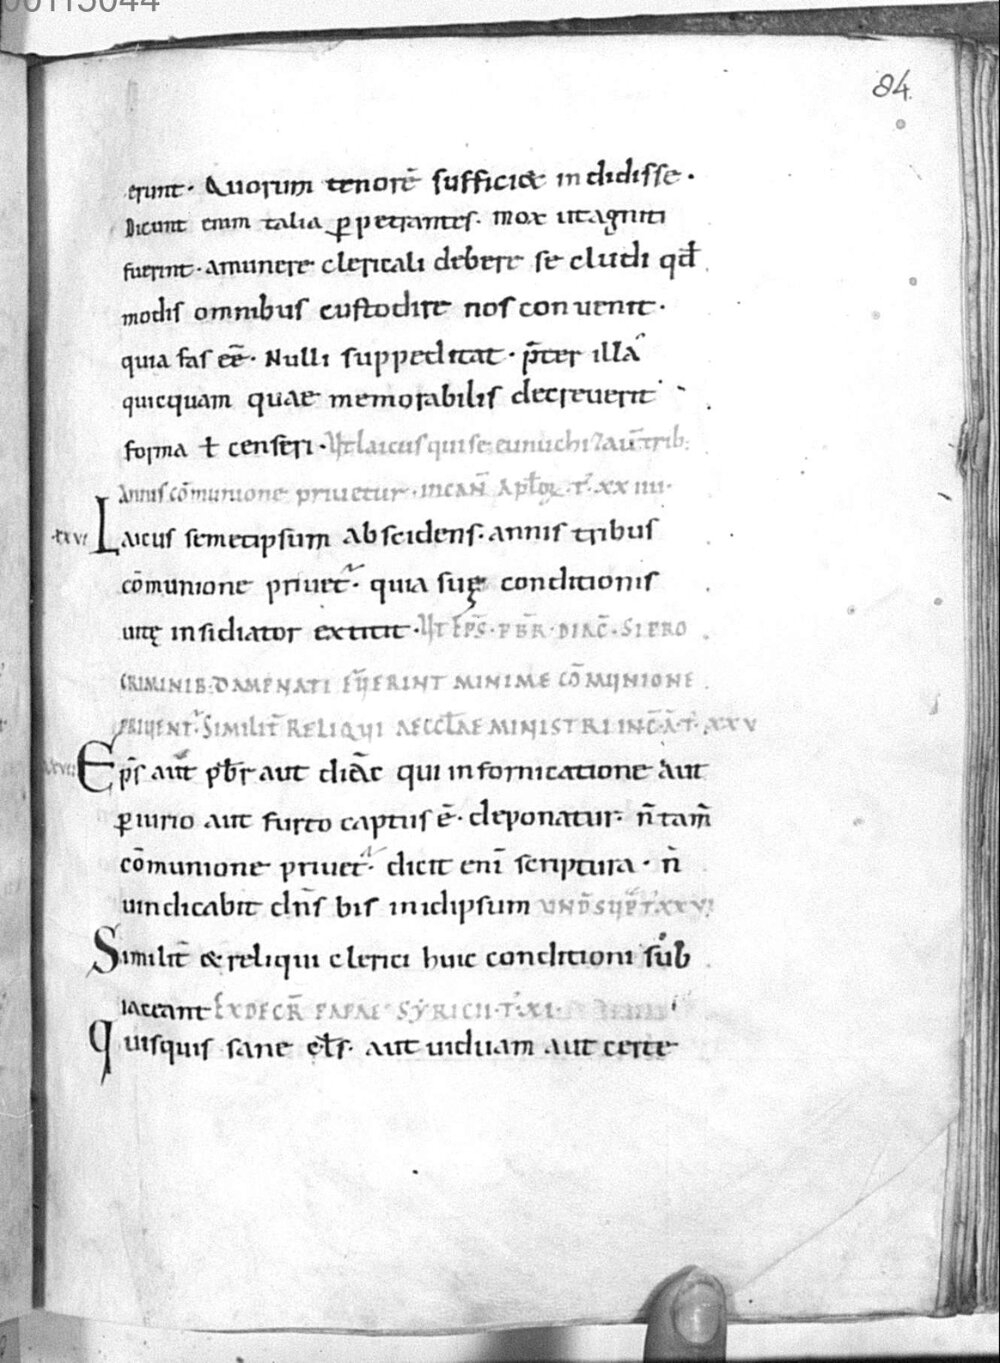 00115044
84.
erunt· Quorum tenorē sufficiat indidisse·
Dicunt enim talia ꝑpetrantes· mox ut agniti
fuerint· amunere clericali debere se cludi qđ
modis omnibus custodire nos conuenit·
quia fas eē· Nulli suppeditat· p̄ter illā
quicquam quae memorabilis decreuerit
forma ł censeri· Ut laicus qui se eunuchizau̅ trib;
Annis cōmunione priuetur· in cañ Aptꝝ· t̄· xxiiii·
Laicus semetipsum abscidens· annis tribus
cōmunione priuet̄· quia suę conditionis
uitę insidiator extitit· Ut EP̄S· PB̄R· DIAC̄· SI PRO
CRIMINIB; DAMPNATI FUERINT MINIME CŌMUNIONE
PRIUENT̄· SIMILIT̄ RELIQUI AECCLAE MINISTRI IN C̄· Ā· T̄· XXV
Ep̄s aut̄ pb̄r aut diāc qui in fornicatione aut
ꝑiurio aut furto captus ē· deponatur· n̄ tam̄
cōmunione priuet̄· dicit eni̅ scriptura· n̄
uindicabit dn̄s bis in idipsum UND̄ SUP̄ T̄ XXVI
Similit̄ & reliqui clerici huic conditioni sub
iaceant EX DECR̄ PAPAE SYRICII· T̄· XI·
Quisquis sane cl̄s· aut uiduam aut certe